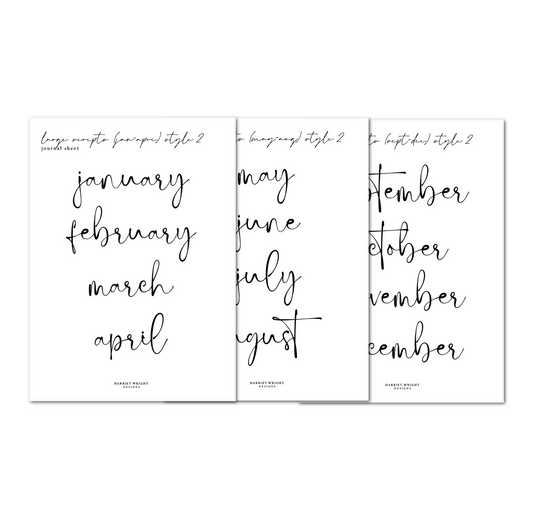 large scripts (jan-apri) style 2
journal sheet
january
february
march
april
HARRIET WRIGHT
DESIGNS
to (may-aug) style 2
may
june
july
gust
HARRIET WRIGHT
DESIGNS
to (sept-dec) style 2
tember
ctober
vember
cember
HARRIET WRIGHT
DESIGNS